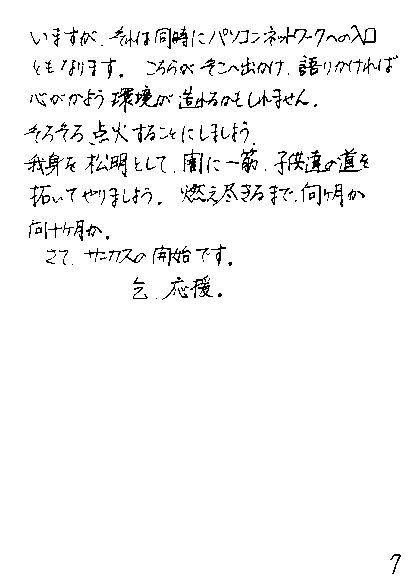 いますが、それは同時にパソコンネットワークへの入口
ともなります。こちらがそこへ出かけ、語りかければ
心がかよう環境が造れるかもしれません。
そろそろ点火することにしましょう。
我身を松明として、闇に一筋、子供達の道を
拓いてやりましょう。燃え尽きるまで、何ヶ月か
何十ヶ月か。
さて、サーカスの開始です。
乞、応援。
7